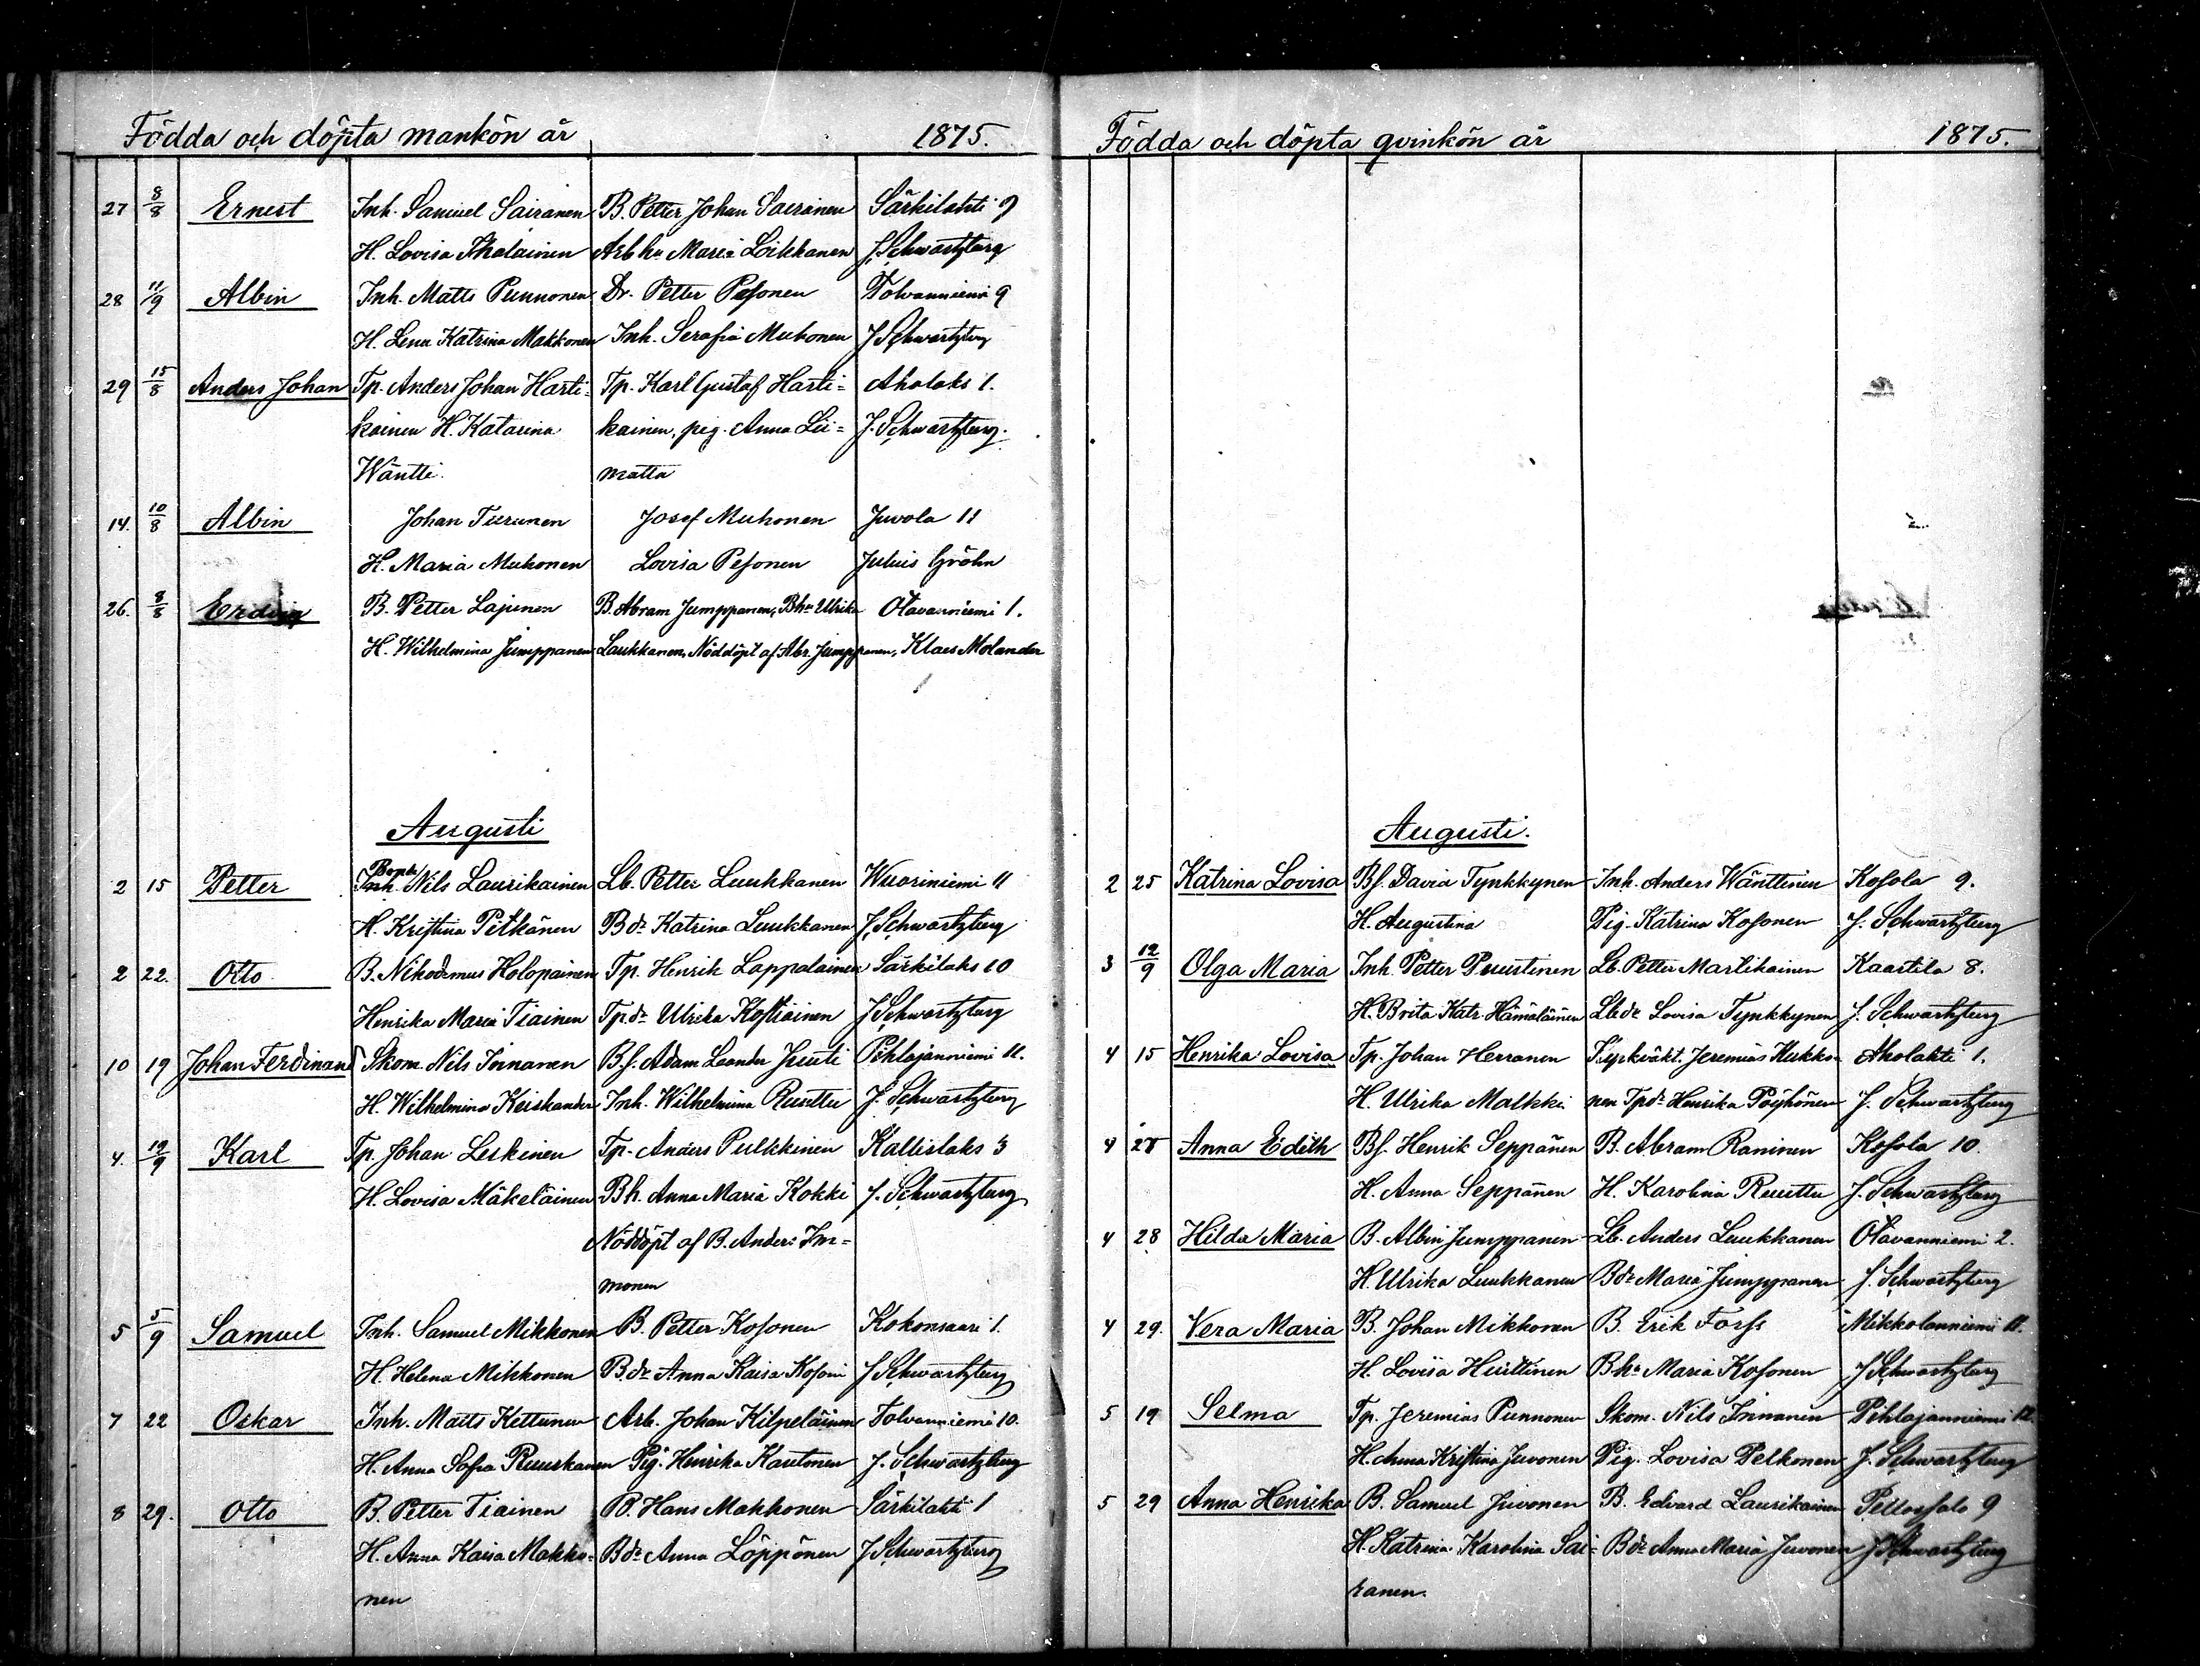 Födda och döpta mankön år 1875.
27 8/8 Ernest Inh. Samuel Sairanen B. Petter Johan Sairanen Särkilahti 9
H. Lovisa Ikalainen Arb hu Maria Loikkanen J. Schwartzberg
28 11/9 Albin Inh. Matts Punnonen Dr. Petter Pesonen Tolvanniemi 9
H. Lena Katrina Makkonen Inh. Serafia Muhonen J Schwartzberg
29 15/8 Anders Johan Tp. Anders Johan Harti- Tp. Karl Gustaf Harti= Aholaks 1.
kainen H. Katarina kainen, pig. Anna Lii= J. Schwartzberg.
Wäntti. matta
14. 10/8 Albin Johan Tiirunen Josef Muhonen Juvola 11
H. Maria Muhonen Lovisa Pesonen Julius Gröhn
26. 8/8 B. Petter Lajunen B. Abram Jumppanen, Bhu Ulrika Otavanniemi 1.
H. Wilhelmina Jumppanen Laukkanen, Nöddöpt af Abr. Jumppanen, Klaes Molander
Augusti
2 15 Petter Inh. Nils Laurikainen Lb. Petter Luukkanen Wuoriniemi 11
H. Kristina Pitkänen Bdr Katrina Luukkanen J. Schwartzberg
2 22. Otto B. Nikodemus Holopainen Tp. Henrik Lappalainen Särkilaks 10
Henrika Maria Tiainen Tp.dr Ulrika Kostiainen J Schwartzberg
10 19 Johan Ferdinand Skom. Nils Innanen B.s. Adam Leander Juuti Pihlajanniemi 11.
H. Wilhelmina Keiskander Inh. Wilhelmina Ruuttu J. Schwartzberg
4. 19/9 Karl Tp. Johan Leskinen Tp. Anders Pulkkinen Kallislaks 3
H. Lovisa Mäkeläinen Bh. Anna Maria Kokki J. Schwartzberg
Nöddöpt af B. Anders Im=
monen
5 5/9 Samuel Inh. Samuel Mikkonen B. Petter Kosonen Kokonsaari 1.
H. Helena Mikkonen B.dr Anna Kaisa Koson J Schwartzberg
7 22 Oskar Inh. Matts Kettunen Arb. Johan Kilpeläinen Tolvanniemi 10.
H. Anna Sofia Ruuskanen Pig. Henrika Kautonen J. Schwartzberg
8 29. Otto B. Petter Tiainen B. Hans Makkonen Särkilahti 1
H. Anna Kaisa Makko- Bdr Anna Löppönen J Schwartzberg
nen
Födda och döpta qvinkön år 1875.
Augusti.
2 25 Katrina Lovisa Bs. David Tynkkynen Inh. Anders Wänttinen Kosola 9.
H. Augustina Pig. Katrina Kosonen J. Schwartzberg
3 12/9 Olga Maria Inh. Petter Puustinen Lb. Petter Martikainen Kaartila 8.
H. Brita Katr. Hämäläinen Lbdr Lovisa Tynkkynen J. Schwartzberg
4 15 Henrika Lovisa Tp. Johan Herranen Kyrkväkt. Jeremias Kukko- Aholahti 1.
H. Ulrika Malkki nen Tpdr Henrika Pöyhönen J. Schwartzberg
4 28 Anna Edith Bs. Henrik Seppänen B. Abram Raninen Kosola 10.
H. Anna Seppänen H. Karolina Ruuttu J. Schwartzberg
4 28 Hilda Maria B. Albin Jumppanen Lb. Anders Luukkanen Otavanniemi 2.
H. Ulrika Luukkanen Bdr Maria Jumppanen J. Schwartzberg
4 29. Vera Maria B. Johan Mikkonen B. Erik Forss Mikkolanniemi 11.
H. Lovisa Huttinen Bhu Maria Kosonen J Schwartzberg
5 19 Selma Tp. Jeremias Punnonen Skom. Nils Innanen Pihlajanniemi 12.
H. Anna Kristina Juvonen Pig. Lovisa Pelkonen J. Schwartzberg
5 29 Anna Henrika B. Samuel Juvonen B. Edvard Laurikainen Pellossalo 9
H. Katrina Karolina Sai- Bdr Anna Maria Juvonen J Schwartzberg
ranen.